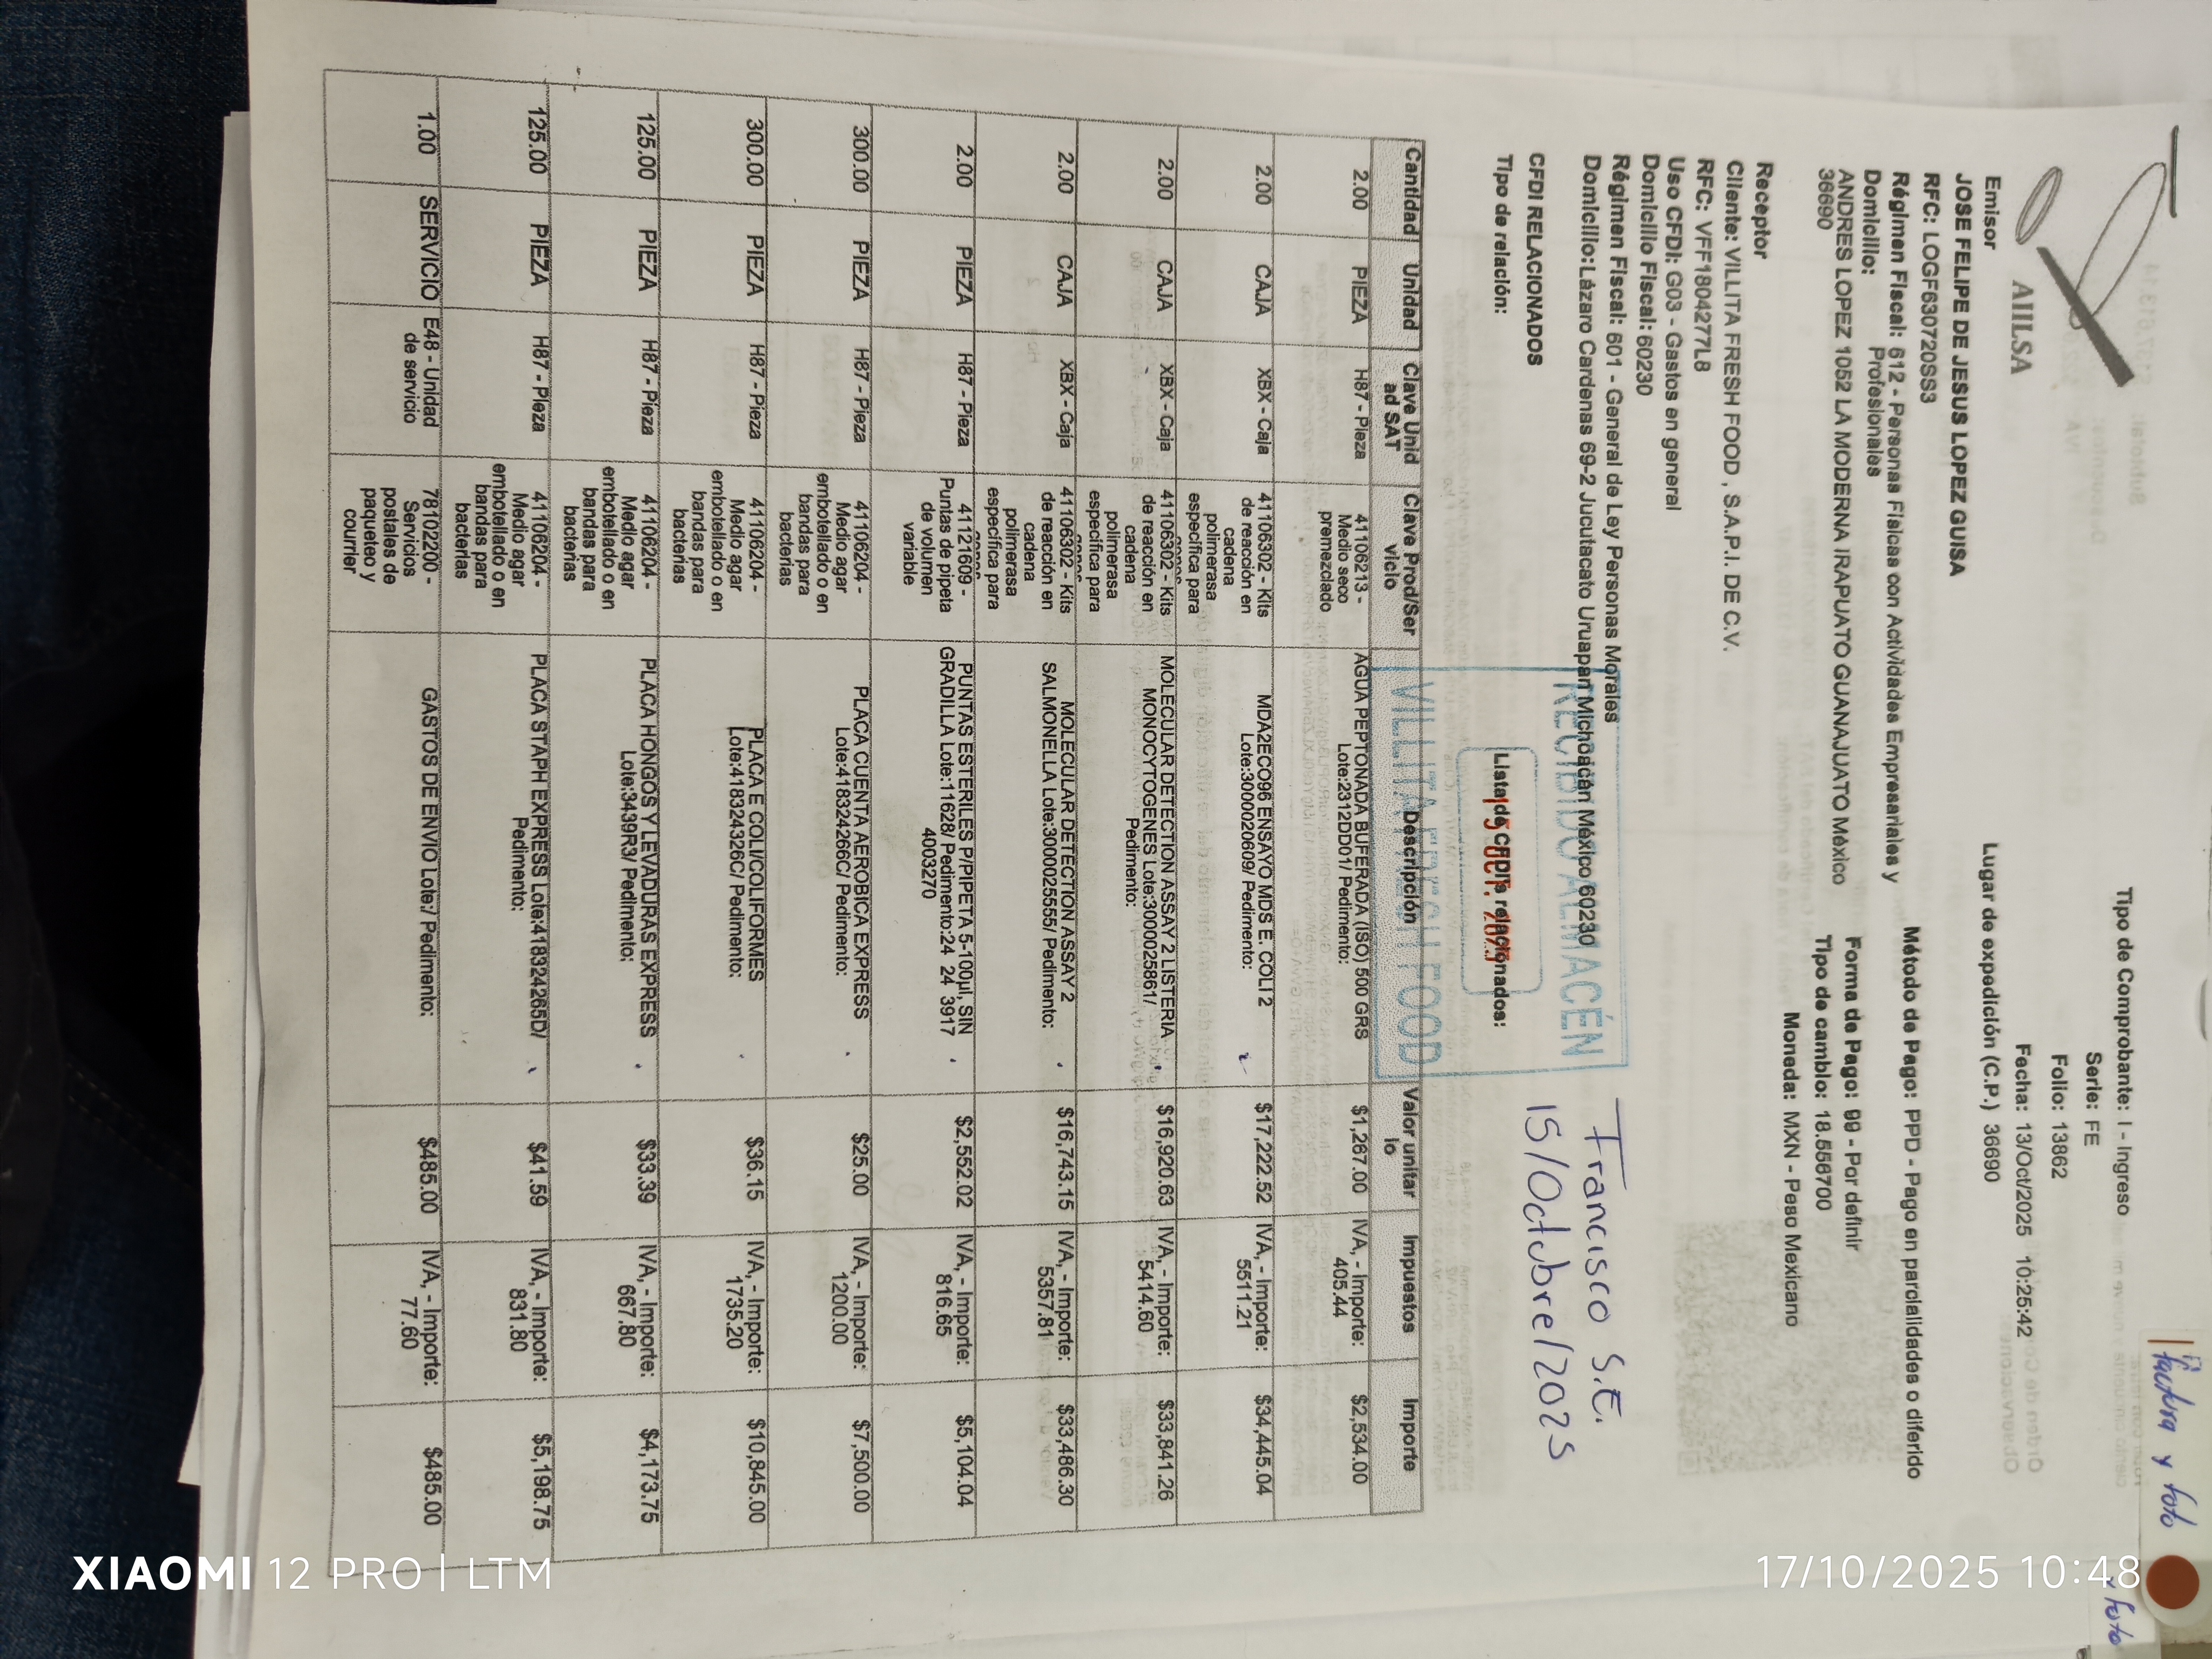 factura y foto
y foto
AIILSA
Tipo de Comprobante: I - Ingreso
Serie: FE
Folio: 13862
Fecha: 13/Oct/2025 10:25:42
Lugar de expedición (C.P.) 36690
Emisor
JOSE FELIPE DE JESUS LOPEZ GUISA
RFC: LOGF630720SS3
Régimen Fiscal: 612 - Personas Físicas con Actividades Empresariales y
Profesionales
Domicilio:
ANDRES LOPEZ 1052 LA MODERNA IRAPUATO GUANAJUATO México
36690
Método de Pago: PPD - Pago en parcialidades o diferido
Forma de Pago: 99 - Por definir
Tipo de cambio: 18.556700
Moneda: MXN - Peso Mexicano
Receptor
Cliente: VILLITA FRESH FOOD , S.A.P.I. DE C.V.
RFC: VFF1804277L8
Uso CFDI: G03 - Gastos en general
Domicilio Fiscal: 60230
Régimen Fiscal: 601 - General de Ley Personas Morales
Domicilio:Lázaro Cardenas 69-2 Jucutacato Uruapan Michoacán México 60230
RECIBIDO ALMACÉN
15 OCT. 2025
VILLITA FRESH FOOD
Francisco S.E.
15/Octubre/2025
CFDI RELACIONADOS
Tipo de relación:
Lista de CFDI's relacionados:
Cantidad Unidad Clave Unid ad SAT Clave Prod/Ser vicio Descripción Valor unitar io Impuestos Importe
2.00 PIEZA H87 - Pieza 41106213 - Medio seco premezclado AGUA PEPTONADA BUFERADA (ISO) 500 GRS Lote:2312DD01/ Pedimento: $1,267.00 IVA, - Importe: 405.44 $2,534.00
2.00 CAJA XBX - Caja 41106302 - Kits de reacción en cadena polimerasa específica para MDA2ECO96 ENSAYO MDS E. COLI 2 Lote:3000020609/ Pedimento: $17,222.52 IVA, - Importe: 5511.21 $34,445.04
2.00 CAJA XBX - Caja 41106302 - Kits de reacción en cadena polimerasa específica para MOLECULAR DETECTION ASSAY 2 LISTERIA MONOCYTOGENES Lote:3000025861/ Pedimento: $16,920.63 IVA, - Importe: 5414.60 $33,841.26
2.00 CAJA XBX - Caja 41106302 - Kits de reacción en cadena polimerasa específica para MOLECULAR DETECTION ASSAY 2 SALMONELLA Lote:3000025555/ Pedimento: $16,743.15 IVA, - Importe: 5357.81 $33,486.30
2.00 PIEZA H87 - Pieza 41121609 - Puntas de pipeta de volumen variable PUNTAS ESTERILES P/PIPETA 5-100µl, SIN GRADILLA Lote:11628/ Pedimento:24 24 3917 4003270 $2,552.02 IVA, - Importe: 816.65 $5,104.04
300.00 PIEZA H87 - Pieza 41106204 - Medio agar embotellado o en bandas para bacterias PLACA CUENTA AEROBICA EXPRESS Lote:418324266C/ Pedimento: $25.00 IVA, - Importe: 1200.00 $7,500.00
300.00 PIEZA H87 - Pieza 41106204 - Medio agar embotellado o en bandas para bacterias PLACA E COLI/COLIFORMES Lote:418324326C/ Pedimento: $36.15 IVA, - Importe: 1735.20 $10,845.00
125.00 PIEZA H87 - Pieza 41106204 - Medio agar embotellado o en bandas para bacterias PLACA HONGOS Y LEVADURAS EXPRESS Lote:3439R3/ Pedimento: $33.39 IVA, - Importe: 667.80 $4,173.75
125.00 PIEZA H87 - Pieza 41106204 - Medio agar embotellado o en bandas para bacterias PLACA STAPH EXPRESS Lote:418324265D/ Pedimento: $41.59 IVA, - Importe: 831.80 $5,198.75
1.00 SERVICIO E48 - Unidad de servicio 78102200 - Servicios postales de paqueteo y courrier GASTOS DE ENVIO Lote:/ Pedimento: $485.00 IVA, - Importe: 77.60 $485.00
XIAOMI 12 PRO | LTM
17/10/2025 10:48